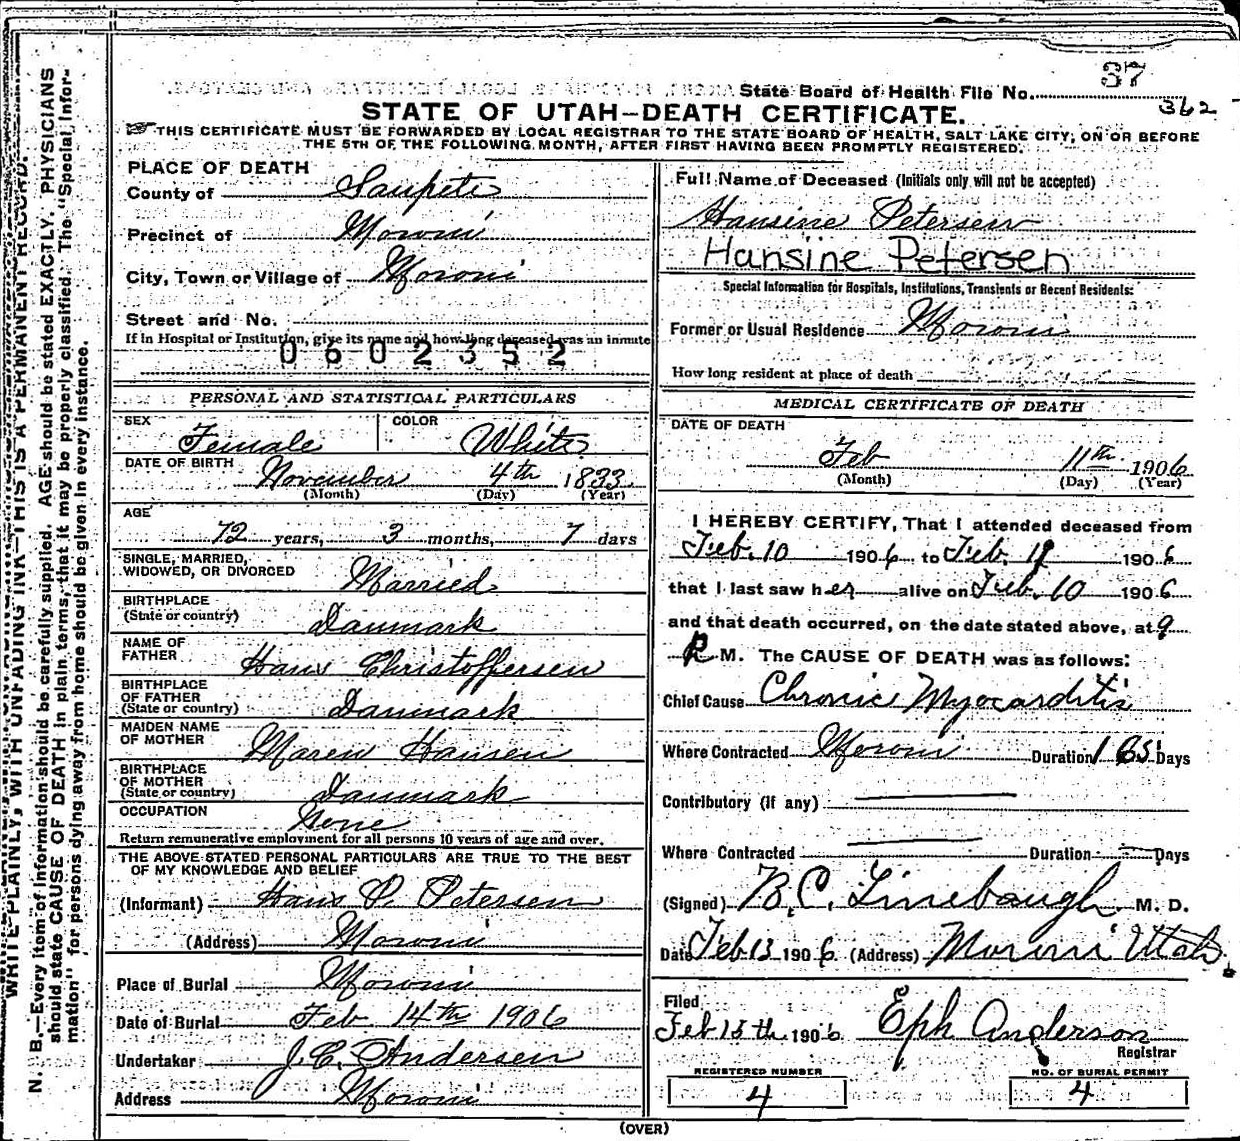 37
State Board of Health File No.
362
STATE OF UTAH—DEATH CERTIFICATE.
THIS CERTIFICATE MUST BE FORWARDED BY LOCAL REGISTRAR TO THE STATE BOARD OF HEALTH, SALT LAKE CITY, ON OR BEFORE
THE 5TH OF THE FOLLOWING MONTH, AFTER FIRST HAVING BEEN PROMPTLY REGISTERED.
WRITE PLAINLY, WITH UNFADING INK—THIS IS A PERMANENT RECORD.
N. B.—Every item of information should be carefully supplied. AGE should be stated EXACTLY. PHYSICIANS
should state CAUSE OF DEATH in plain terms, that it may be properly classified. The "Special Infor-
mation" for persons dying away from home should be given in every instance.
PLACE OF DEATH
County of Sanpete
Precinct of Moroni
City, Town or Village of Moroni
Street and No.
If in Hospital or Institution, give its name and how long deceased was an inmate
0602352
PERSONAL AND STATISTICAL PARTICULARS
SEX Female COLOR White
DATE OF BIRTH November 4th 1833
(Month) (Day) (Year)
AGE
72 years, 3 months, 7 days
SINGLE, MARRIED,
WIDOWED, OR DIVORCED Married
BIRTHPLACE
(State or country) Danmark
NAME OF
FATHER Hans Christoffersen
BIRTHPLACE
OF FATHER
(State or country) Danmark
MAIDEN NAME
OF MOTHER Maren Hansen
BIRTHPLACE
OF MOTHER
(State or country) Danmark
OCCUPATION None
Return remunerative employment for all persons 10 years of age and over.
THE ABOVE STATED PERSONAL PARTICULARS ARE TRUE TO THE BEST
OF MY KNOWLEDGE AND BELIEF
(Informant) Hans P. Petersen
(Address) Moroni
Place of Burial Moroni
Date of Burial Feb 14th 1906
Undertaker J. C. Andersen
Address Moroni
Full Name of Deceased (Initials only will not be accepted)
Hansine Petersen
Hansine Petersen
Special Information for Hospitals, Institutions, Transients or Recent Residents:
Former or Usual Residence Moroni
How long resident at place of death
MEDICAL CERTIFICATE OF DEATH
DATE OF DEATH
Feb 11th 1906
(Month) (Day) (Year)
I HEREBY CERTIFY, That I attended deceased from
Feb. 10 1906 to Feb. 11 1906
that I last saw her alive on Feb. 10 1906
and that death occurred, on the date stated above, at 9
P. M. The CAUSE OF DEATH was as follows:
Chief Cause Chronic Myocarditis
Where Contracted Moroni Duration Days
Contributory (if any)
Where Contracted Duration Days
(Signed) B. C. Linebaugh M. D.
Date Feb 13 1906 (Address) Moroni Utah.
Filed
Feb 15th 1906 Eph Anderson
Registrar
REGISTERED NUMBER NO. OF BURIAL PERMIT
4 4
(OVER)